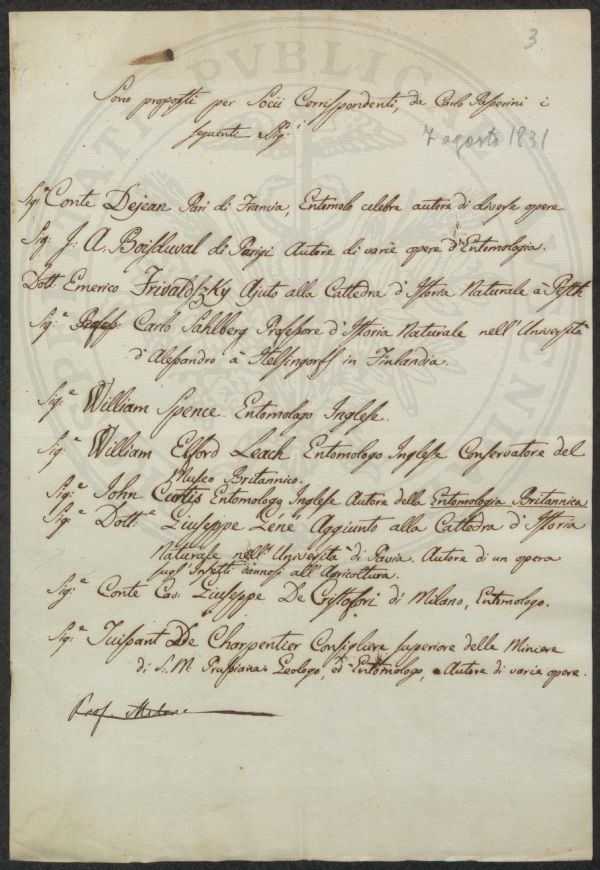 3.
Sono proposti per Socii Corrispondenti, da Carlo Passerini i
seguenti Sig.i
7 agosto 1831
Sig.e Conte Dejean Pari di Francia, Entomolo celebre autore di diverse opere
Sig. J. A. Boisduval di Parigi Autore di varie opere d'Entomologia.
Dott. Emerico Frivaldszky Ajuto alla Cattedra d'Istoria Naturale à Pesth
Sig.e Profess Carlo Sahlberg Professore d'Istoria Naturale nell'Università
d'Alessandro à Helsengorfs in Finlandia.
Sig.e William Spence Entomologo Inglese.
Sig.e William Elford Leach Entomologo Inglese Conservatore del
Museo Britannico.
Sig.e John Curtis Entomologo Inglese Autore della Entomologia Britannica
Sig.e Dott.e Giuseppe Géné Aggiunto alla Cattedra d'Istoria
Naturale nell'Università di Pavia. Autore di un opera
sugl'Insetti dannosi all'Agricoltura.
Sig.e Conte Cav. Giuseppe De Cristofori di Milano, Entomologo.
Sig.e Tuissant De Charpentier Consigliere superiore delle Miniere
di S. M. Prussiana Geologo, ed Entomologo, Autore di varie opere.
Prof.
PVBLICAE